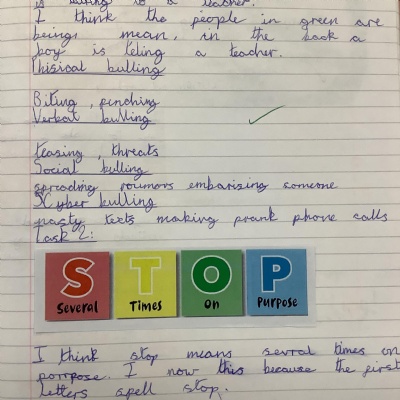 I think the people in green are
being mean, in the back a
boy is teling a teacher.
Phisical bulling
Biting, pinching
Verbal bulling
teasing, threats
Social bulling
spreading roumors embarising someone
Cyber bulling
nasty texts making prank phone calls
Task 2:
S T O P
Several Times On Purpose
I think stop means sevral times on
porrpose. I now this because the first
letters spell stop.